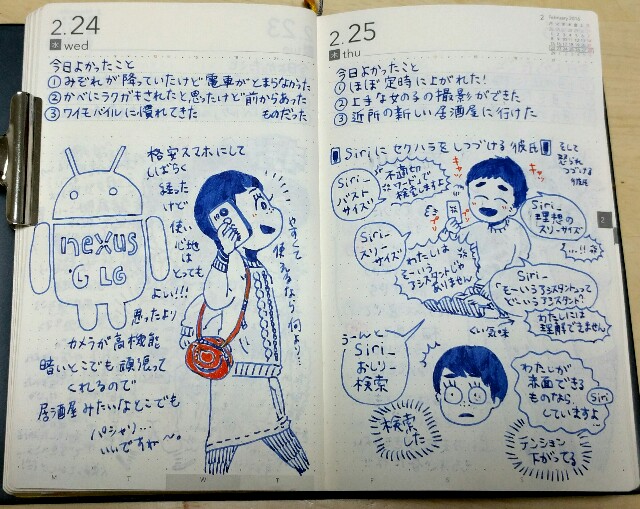 2.24
水 wed
今日よかったこと
①みぞれが降っていたけど電車がとまらなかった
②かべにラクガキされたと思ったけど前からあった
ものだった
③ワイモバイルに慣れてきた
格安スマホにして
しばらく
経った
けど
使い
心地
は
とっても
よい!!!
思ったより
カメラが高機能
暗いとこでも頑張って
くれるので
居酒屋みたいなとこでも
パシャリ…
いいですね〜。
nexus
G LG
やすくて
使えるなら何より…
M T W T F S S
2.25
木 thu
2
今日よかったこと
①ほぼ定時に上がれた!
②上手な女の子の撮影ができた
③近所の新しい居酒屋に行けた
Siriにセクハラをしつづける彼氏
そして
怒られ
つづける
彼氏
Siri_
バスト
サイズ
不適切
ワードで
検索しますよ
キャッ
キャッ
Siri_
理想の
スリーサイズ
Siri_
スリー
サイズ
わたしは
そーいう
アシスタントじゃ
ありません
…!!
Siri_
「そーいうアシスタント」って
どーいうアシスタント?
わたしには
理解できません
ぐい気味
うーんと
Siri_
おしり_
検索
検索
した
わたしが
赤面できる
ものなら、
していますよ
Siri
テンション
下がってる
2